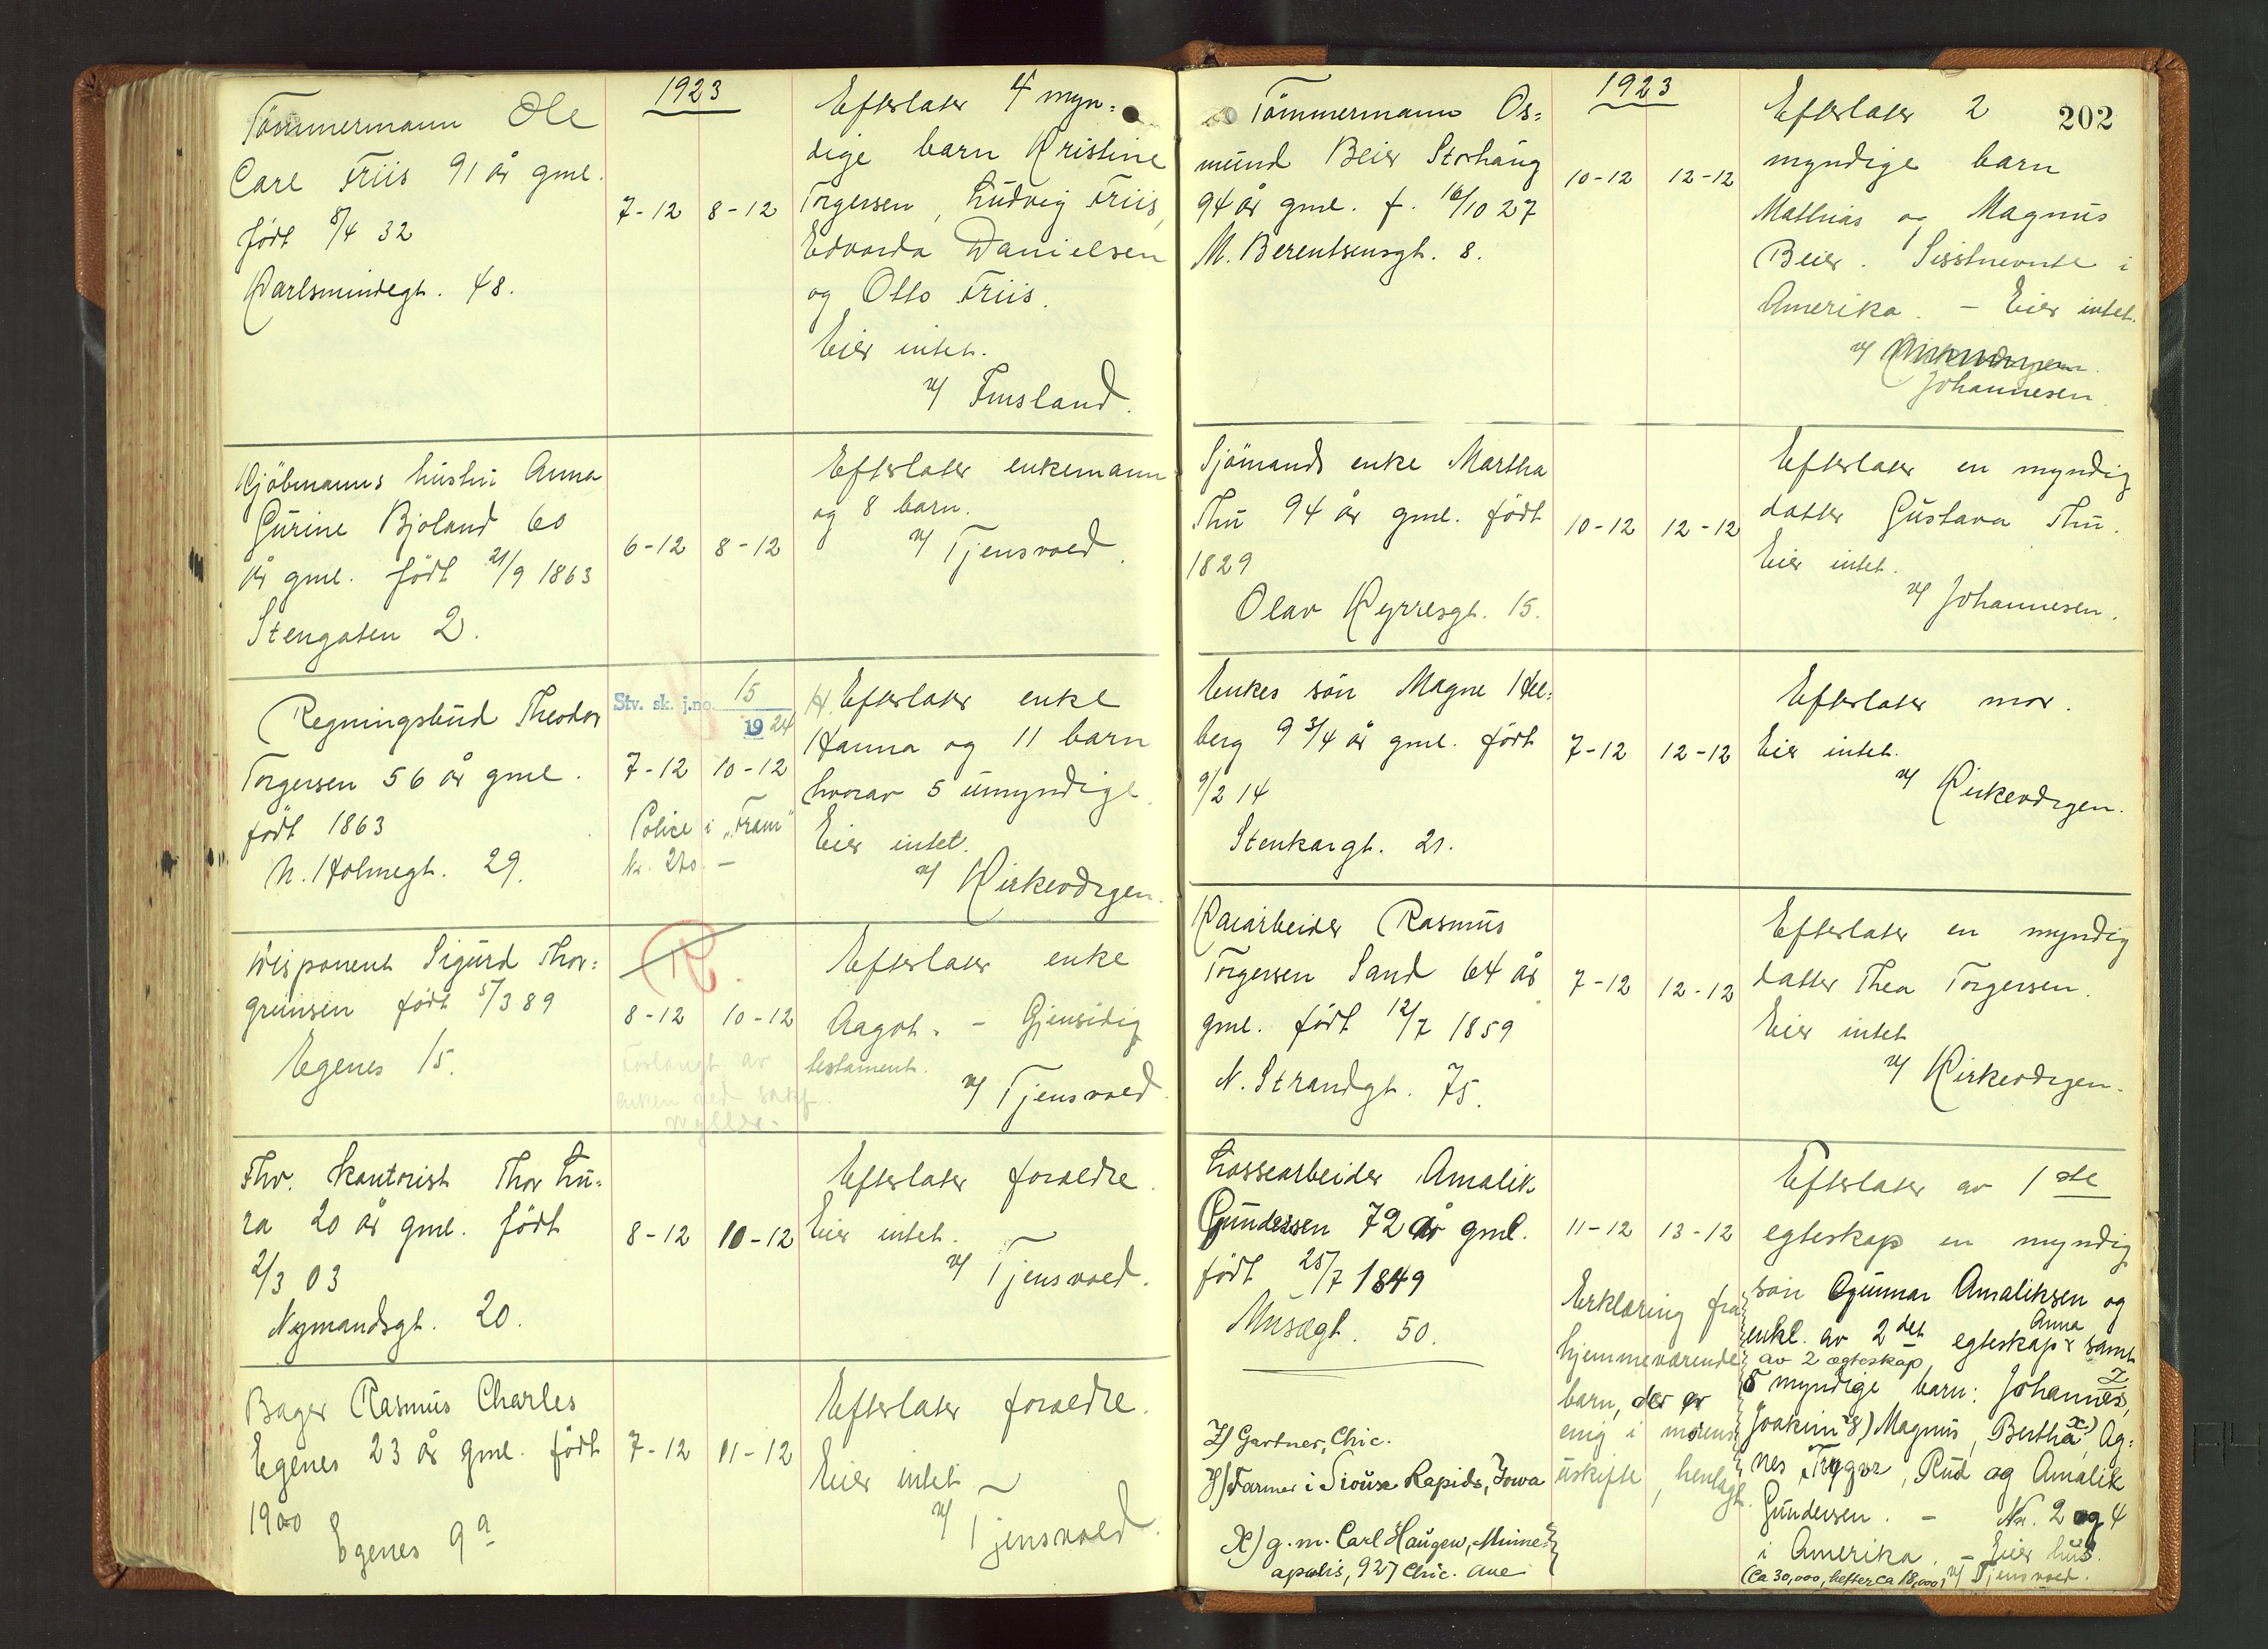 1923
Tömmermann Ole
Carl Friis 91 år gml.
født 8/4 32
Karlsmindegt. 48.
7-12 8-12
Efterlater 4 myn=
dige barn Kristine
Torgersen, Ludvig Friis,
Edvarda Danielsen
og Otto Friis.
Eier intet.
v/ Finsland.
Kjöbmanns hustru Anna
Gurine Bjoland 60
år gml. født 21/9 1863
Stengaten 2.
6-12 8-12
Efterlater enkemann
og 8 barn.
v/ Tjensvold.
Regningsbud Theodor
Torgersen 56 år gml.
født 1863
N. Holmegt. 29.
Stv. sk. j.no. 15
1924
7-12 10-12
Police i "Fram"
kr. 210.-
Efterlater enke
Hanna og 11 barn
hvorav 5 umyndige.
Eier intet.
v/ Kirkevågen.
Disponent Sigurd Thor=
grimsen født 5/3 89
Egenes 15.
R.
8-12 10-12
Forlangt av
enken ved sakf.
Efterlater enke
Aagot. - Gjensidig
testament.
v/ Tjensvold.
Fhv. kontorist Thor Lu=
ra 20 år gml. født
2/3 03
Nymandsgt. 20.
8-12 10-12
Efterlater foreldre.
Eier intet.
v/ Tjensvold.
Bager Rasmus Charles
Egenes 23 år gml. født
1900
Egenes 9a
7-12 11-12
Efterlater foreldre.
Eier intet
v/ Tjensvold.
1923
202
Tömmermann Os=
mund Beier Storhaug
94 år gml. f. 16/10 27
M. Berentsensgt. 8.
10-12 12-12
Efterlater 2
myndige barn
Mathias og Magnus
Beier. Sisstnevnte i
Amerika. - Eier intet.
v/ Kirkevågen.
Johannesen.
Sjömands enke Martha
Thu 94 år gml. født
1829
Olav Kyrresgt. 15.
10-12 12-12
Efterlater en myndig
datter Gustava Thu.
Eier intet.
v/ Johannesen.
Enkes sön Magne Hel=
berg 9 3/4 år gml. født
9/2 14
Stenkargt. 21.
7-12 12-12
Efterlater mor.
Eier intet.
v/ Kirkevågen.
Kaiarbeider Rasmus
Torgersen Sand 64 år
gml. født 12/7 1859
N. Strandgt. 75.
7-12 12-12
Efterlater en myndig
datter Thea Torgersen.
Eier intet
v/ Kirkevågen.
Lossearbeider Amalik
Gundersen 72 år gml.
født 25/7 1849
Musægt. 50.
Z) Gartner, Chic.
Y) Farmer i Sioux Rapids, Iowa
X) g.m. Carl Haugen, Minne=
apolis, 927 Chic. Ave
11-12 13-12
Erklæring fra
hjemmeværende
barn, der er
enig i morens
uskifte, henlagt.
Efterlater av 1ste
egteskap en myndig
sön Gunnar Amaliksen og
enke av 2det egteskap Anna samt
av 2 ægteskap
8 myndige barn: Johannes, Z
Joakim Y) Magnus, Bertha X), Ag=
nes, Trygve, Rud og Amalik
Gundersen. - Nr. 2 og 4
i Amerika. Eier hus.
(Ca 30,000, hefter ca 18,000) v/ Tjensvold.